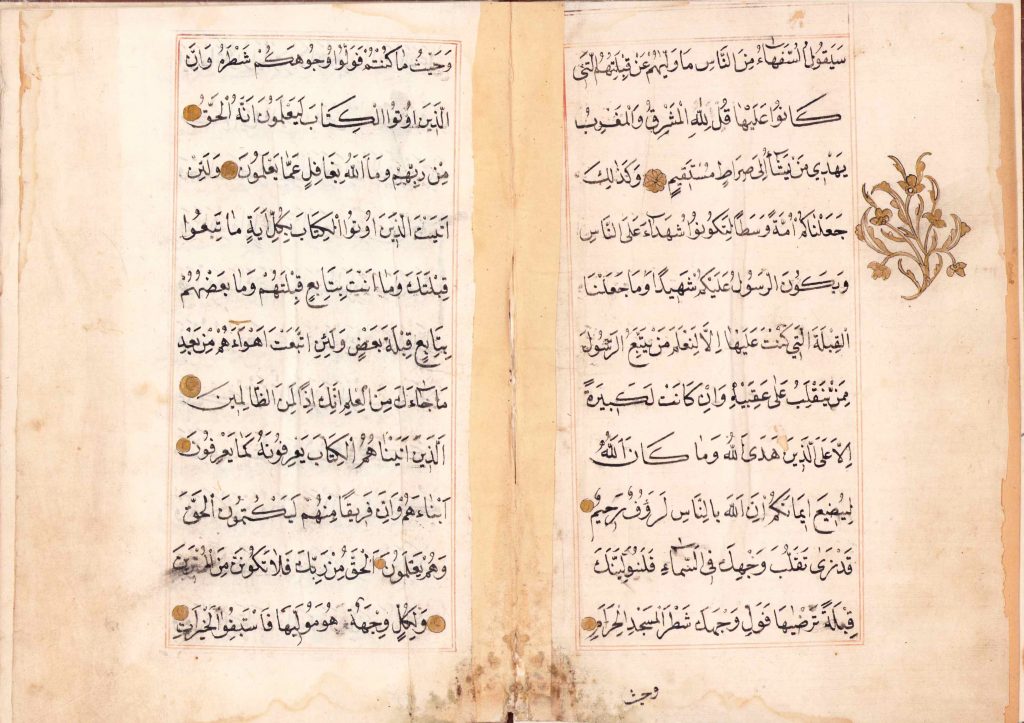 سَيَقُولُ السُّفَهَاءُ مِنَ النَّاسِ مَا وَلّٰيهُمْ عَنْ قِبْلَتِهِمُ الَّتِي
كَانُوا عَلَيْهَا قُلْ لِلّٰهِ الْمَشْرِقُ وَالْمَغْرِبُ
يَهْدِي مَنْ يَشَآءُ اِلٰى صِرَاطٍ مُسْتَقِيمٍ وَكَذٰلِكَ
جَعَلْنَاكُمْ اُمَّةً وَسَطًا لِتَكُونُوا شُهَدَآءَ عَلَى النَّاسِ
وَيَكُونَ الرَّسُولُ عَلَيْكُمْ شَهِيدًا وَمَا جَعَلْنَا
الْقِبْلَةَ الَّتِي كُنْتَ عَلَيْهَا اِلَّا لِنَعْلَمَ مَنْ يَتَّبِعُ الرَّسُولَ
مِمَّنْ يَنْقَلِبُ عَلٰى عَقِبَيْهِ وَاِنْ كَانَتْ لَكَبِيرَةً
اِلَّا عَلَى الَّذِينَ هَدَى اللّٰهُ وَمَا كَانَ اللّٰهُ
لِيُضِيعَ اِيمَانَكُمْ اِنَّ اللّٰهَ بِالنَّاسِ لَرَؤُفٌ رَحِيمٌ
قَدْ نَرٰى تَقَلُّبَ وَجْهِكَ فِي السَّمَآءِ فَلَنُوَلِّيَنَّكَ
قِبْلَةً تَرْضٰيهَا فَوَلِّ وَجْهَكَ شَطْرَ الْمَسْجِدِ الْحَرَامِ
وحيث
وَحَيْثُ مَا كُنْتُمْ فَوَلُّوا وُجُوهَكُمْ شَطْرَهُ وَاِنَّ
الَّذِينَ اُوتُوا الْكِتَابَ لَيَعْلَمُونَ اَنَّهُ الْحَقُّ
مِنْ رَبِّهِمْ وَمَا اللّٰهُ بِغَافِلٍ عَمَّا يَعْمَلُونَ وَلَئِنْ
اَتَيْتَ الَّذِينَ اُوتُوا الْكِتَابَ بِكُلِّ اٰيَةٍ مَا تَبِعُوا
قِبْلَتَكَ وَمَا اَنْتَ بِتَابِعٍ قِبْلَتَهُمْ وَمَا بَعْضُهُمْ
بِتَابِعٍ قِبْلَةَ بَعْضٍ وَلَئِنِ اتَّبَعْتَ اَهْوَآءَهُمْ مِنْ بَعْدِ
مَا جَآءَكَ مِنَ الْعِلْمِ اِنَّكَ اِذًا لَمِنَ الظَّالِمِينَ
اَلَّذِينَ اٰتَيْنَاهُمُ الْكِتَابَ يَعْرِفُونَهُ كَمَا يَعْرِفُونَ
اَبْنَآءَهُمْ وَاِنَّ فَرِيقًا مِنْهُمْ لَيَكْتُمُونَ الْحَقَّ
وَهُمْ يَعْلَمُونَ اَلْحَقُّ مِنْ رَبِّكَ فَلَا تَكُونَنَّ مِنَ الْمُمْتَرِينَ
وَلِكُلٍّ وِجْهَةٌ هُوَ مُوَلِّيهَا فَاسْتَبِقُوا الْخَيْرَاتِ